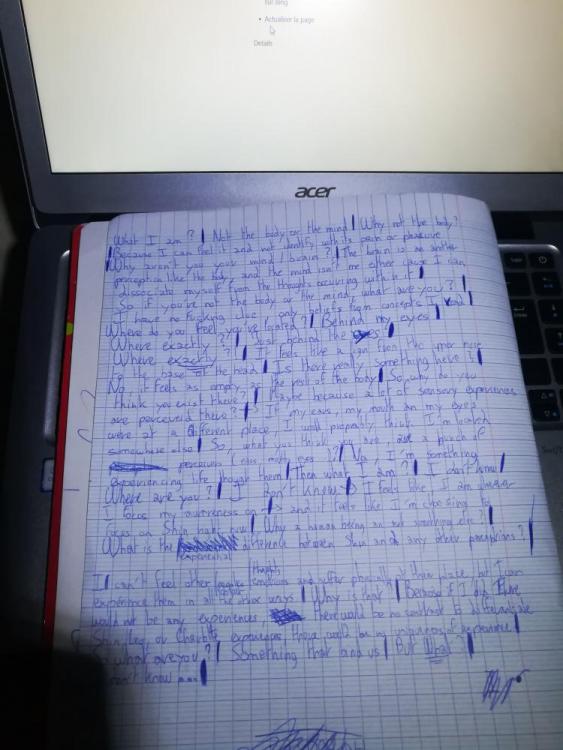 • Actualiser la page
Détails
acer
What I am ? | Not the body or the mind | Why not the body?
Because I can feel it and not identify with its pain or pleasure
Why aren't you your mind / brain ? | The brain is an other
perception like the body and the mind isn't me either cause I can
dissociate myself from the thoughts occuring within it |
So if you're not the body or the mind, what are you ? |
I have no fucking clue, only beliefs from concepts I read |
Where do you feel you're located ? | Behind my eyes |
Where exactly ? | Just behind the eyes |
Where exactly ? | It feels like a
to the base of the head | Is there really something here ? |
No, it feels as empty as the rest of the body | So why do you
think you exist there ? | Maybe because a lot of sensory experiences
are perceived there ? | If my ears, my mouth an my eyes
were at a different place I will propably think I'm located
somewhere else | So, what you think you are, a bunch of
perceivers ( ears, mouth, eyes ) ? | No I'm something
experiencing life though them | Then what I am ? | I don't know |
Where are you ? | I don't know → I feel like I am wherever
I focus my awareness on → and it feels like I'm choosing to
focus on right now | Why a human being an not something else ? |
What is the difference between and any other perceptions ? |
experiential
thoughts
I can't feel other emotions and suffer physically at their place but I can
experience them in all the other ways | Why is that ? | Because if I did there
would not be any experiences, there would be no contrast to differenciate
or experiences, there would be
So what are you ? | Something that | But What ? |
I don't know ...